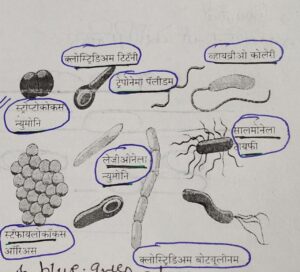 क्लोस्ट्रिडिअम टिटॅनी
व्हायब्रीओ कोलेरी
ट्रेपोनेमा पॅलीडम
स्ट्रॅप्टोकॉकस
न्युमोनि
सालमोनेला
टायफी
लेजीओनेला
न्युमोनि
स्टॅफायलोकॉकस
ऑरिअस
क्लोस्ट्रिडिअम बोटयूलीनम
blue-green